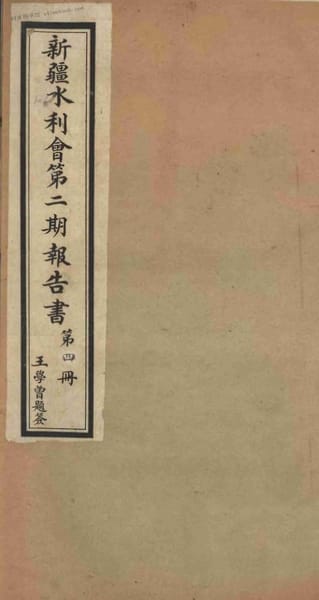 新疆水利會第二期報告書
第四冊
王學曾題簽